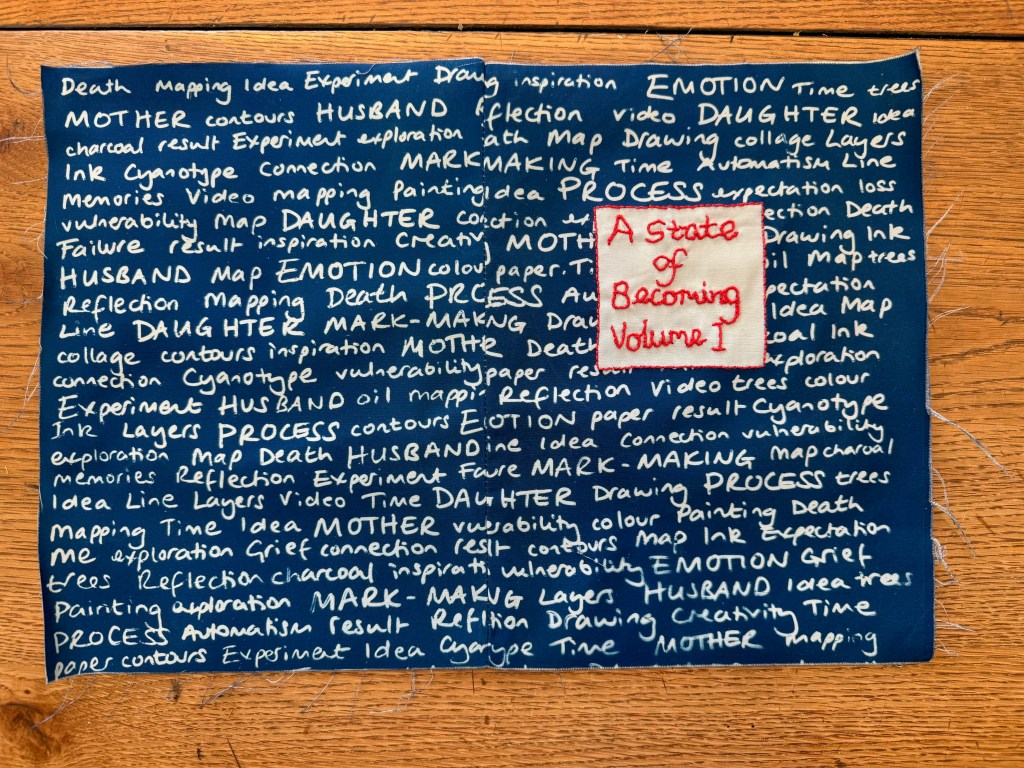 Death Mapping Idea Experiment Drawg inspiration EMOTION Time trees
MOTHER contours HUSBAND flection video DAUGHTER Idea
charcoal result Experiment exploration ath Map Drawing collage Layers
Ink Cyanotype Connection MARK MAKING Time Automatism Line
Memories Video mapping Painting Idea PROCESS expectation loss
vulnerability Map DAUGHTER ction Death
Failure result inspiration Creativ MOTH Drawing Ink
HUSBAND Map EMOTION colou paper. oil Map trees
Reflection Mapping Death PRCESS Au pectation
Line DAUGHTER MARK-MAKNG Draw Idea Map
collage contours inspiration MOTHR Death coal Ink
connection Cyanotype vulnerability paper exploration
Experiment HUSBAND oil mappin Reflection Video trees colour
Ink Layers PROCESS contours EOTION paper result Cyanotype
exploration Map Death HUSBAND ine Idea Connection vulnerability
memories Reflection Experiment MARK-MAKING Map charcoal
Idea Line Layers Video Time DAUHTER Drawing PROCESS trees
Mapping Time Idea MOTHER colour Painting Death
Me exploration Grief connection reslt contours Map Ink Expectation
trees Reflection charcoal inspirati vulnerability EMOTION Grief
Painting exploration MARK-MAKNG Layers HUSBAND Idea trees
PROCESS Automatism result Refltion Drawing Creativity Time
paper contours Experiment Idea Cyanype Time MOTHER mapping
A State
of
Becoming
Volume I